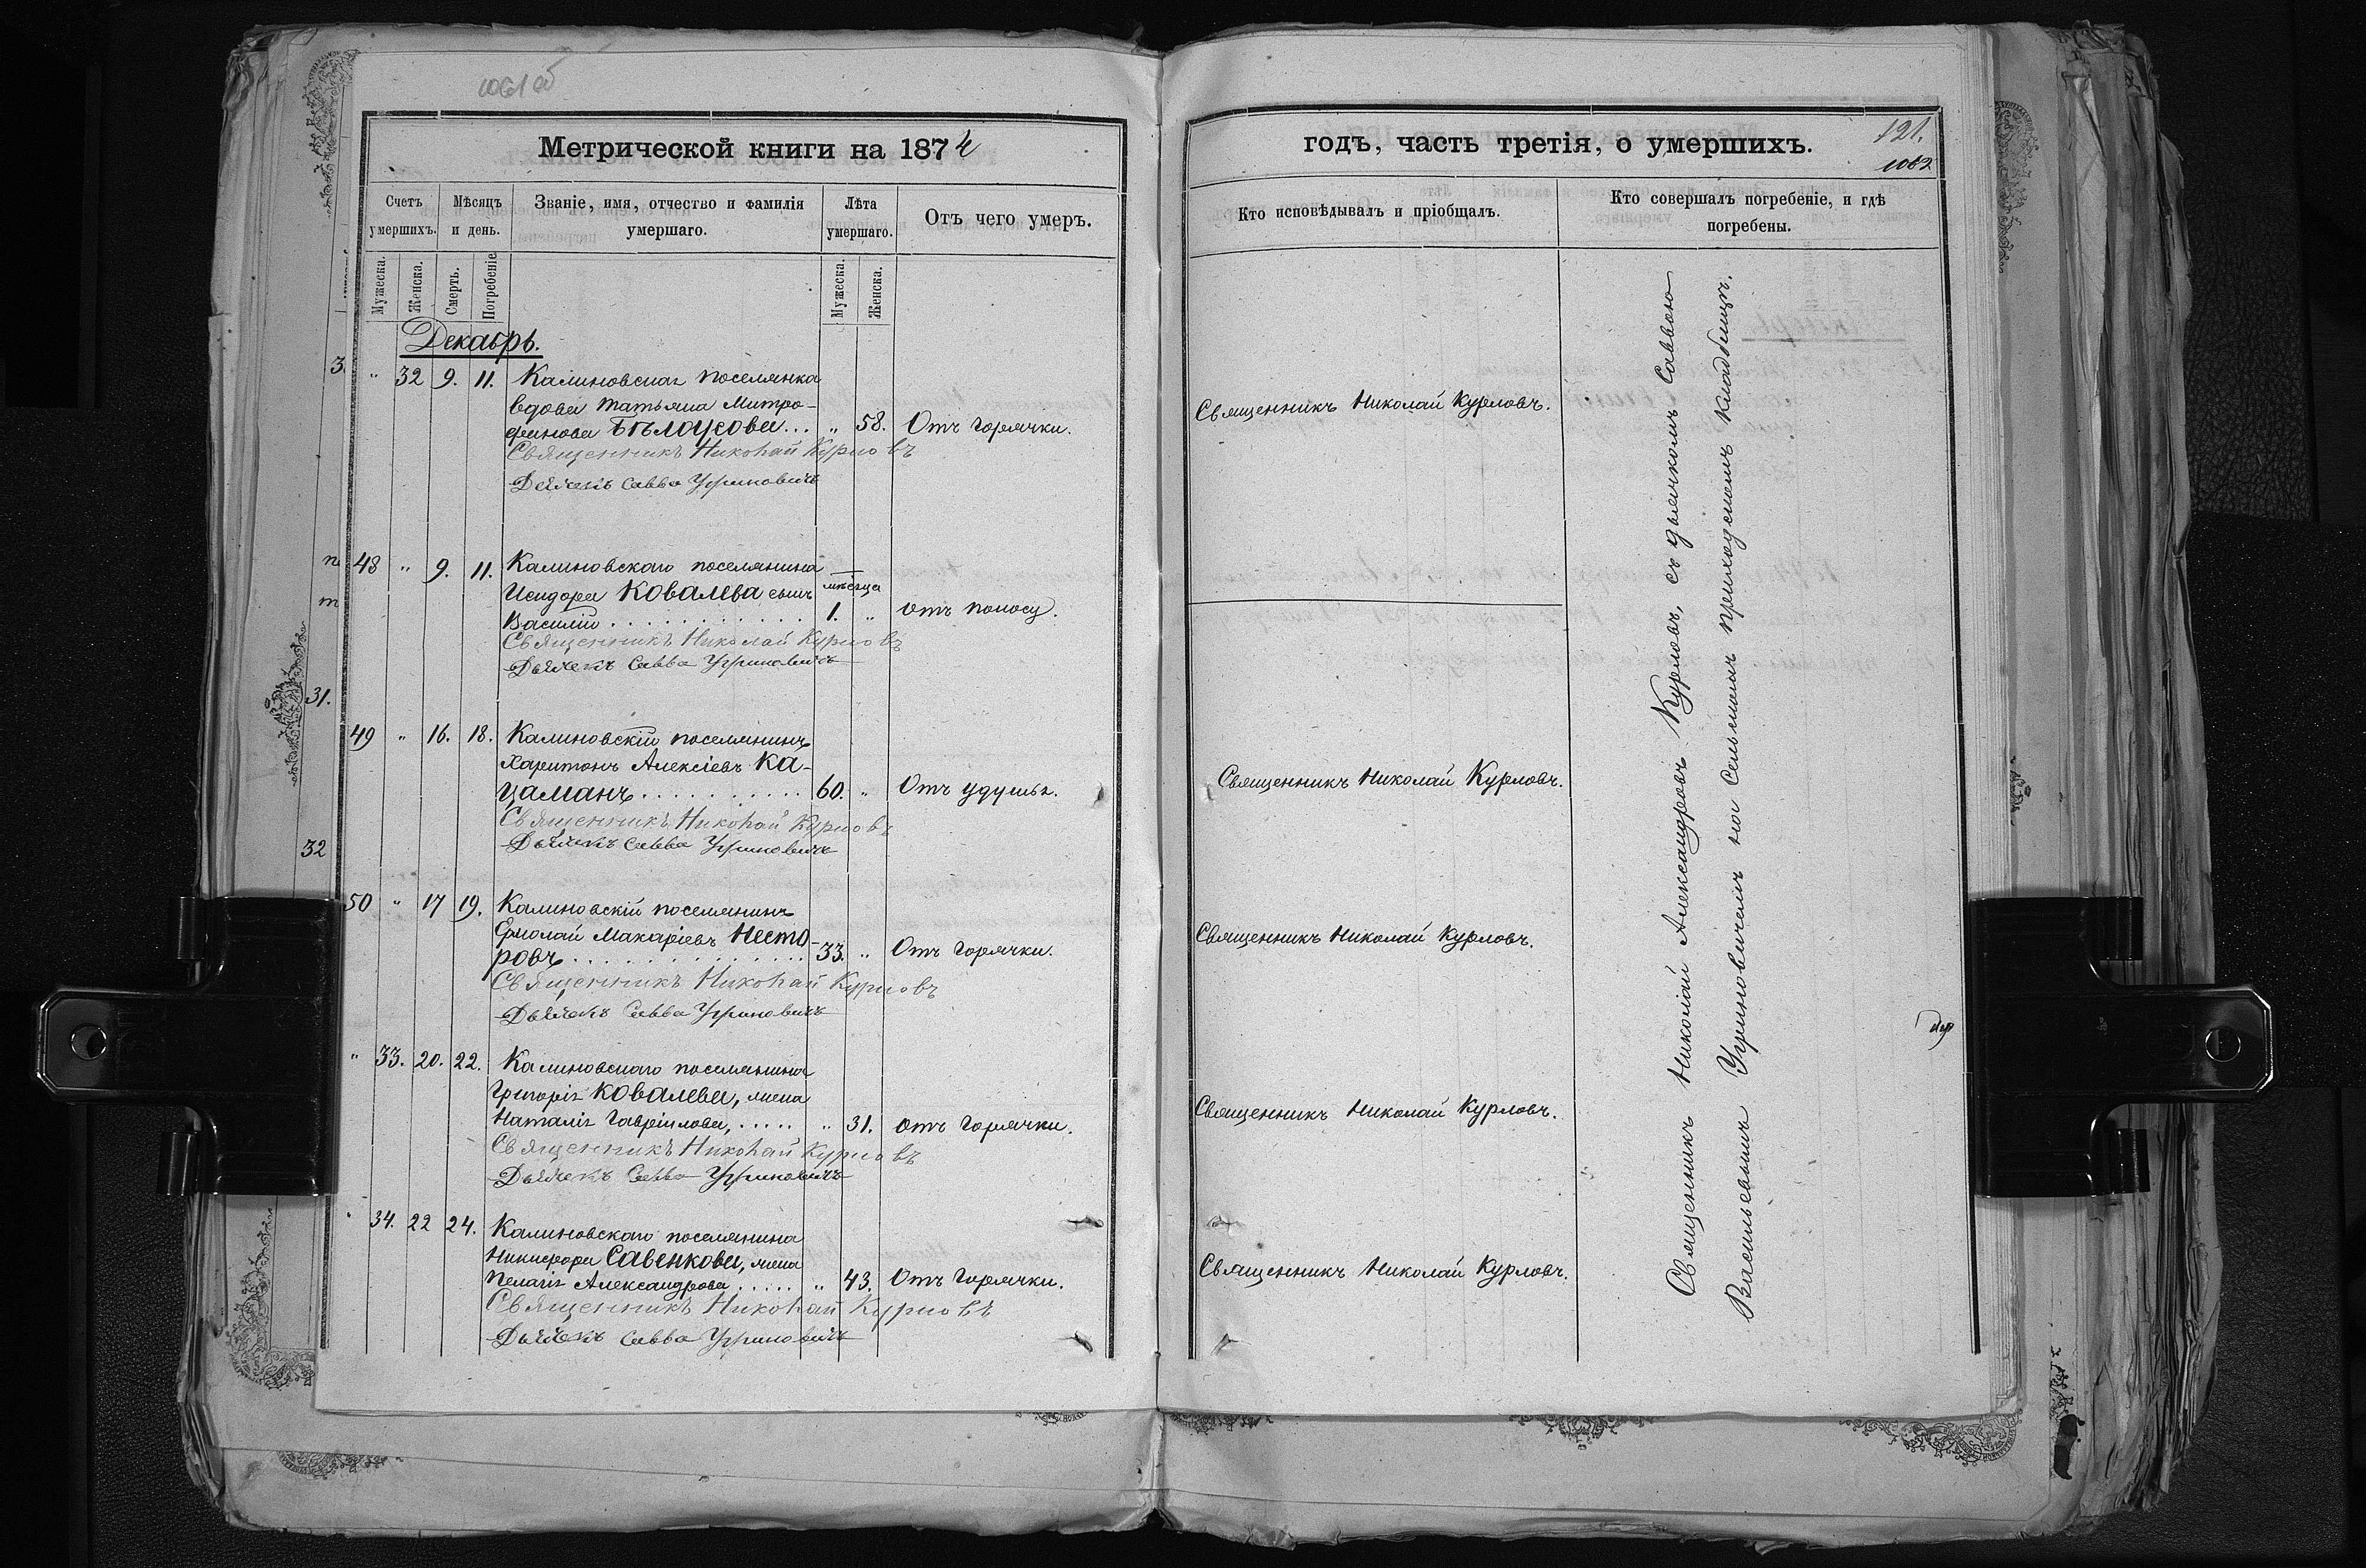 Метрической книги на 1874
Счетъ умершихъ.
Мѣсяцъ и день.
Званіе, имя, отчество и фамилія умершаго.
Лѣта умершаго.
Отъ чего умеръ.
Мужеска.
Женска.
Смерть.
Погребеніе
Мужеска.
Женска.
Декабрь.
" 32 9. 11. Калиновская поселянка
вдова Татьяна Митро-
фанова Бѣлоусова... " 58. Отъ горячки.
Священникъ Николай Курловъ
Дьячекъ Савва Угриновичъ
48 " 9. 11. Калиновскаго поселянина
Исидора Ковалева сынъ мѣсяца
Василій . . . . . . . . . . . 1. " отъ поносу.
Священникъ Николай Курловъ
Дьячекъ Савва Угриновичъ
49 " 16. 18. Калиновскій поселянинъ
Харитонъ Алексіевъ Ка-
цаманъ . . . . . . . . . . 60. " Отъ удушья.
Священникъ Николай Курловъ
Дьячекъ Савва Угриновичъ
50 " 17 19. Калиновскій поселянинъ
Ермолай Макаріевъ Несто-
ровъ . . . . . . . . . . . . . 33. " Отъ горячки.
Священникъ Николай Курловъ
Дьячекъ Савва Угриновичъ
" 33. 20. 22. Калиновскаго поселянина
Григорія Ковалева, жена
Наталія Гавріилова, . . . . . " 31. отъ горячки.
Священникъ Николай Курловъ
Дьячекъ Савва Угриновичъ
" 34. 22 24. Калиновскаго поселянина
Никифора Савенкова, жена
Пелагія Александрова . . . . . " 43. Отъ горячки.
Священникъ Николай Курловъ
Дьячекъ Савва Угриновичъ
3.
31.
32
годъ, часть третія, о умершихъ.
121.
1062
Кто исповѣдывалъ и пріобщалъ.
Кто совершалъ погребеніе, и гдѣ погребены.
Священникъ Николай Курловъ.
Священникъ Николай Курловъ.
Священникъ Николай Курловъ.
Священникъ Николай Курловъ.
Священникъ Николай Курловъ.
Священникъ Николай Александровъ Курловъ, съ дьячкомъ Саввою
Васильевымъ Угриновичемъ на Сельскомъ приходскомъ кладбищѣ.